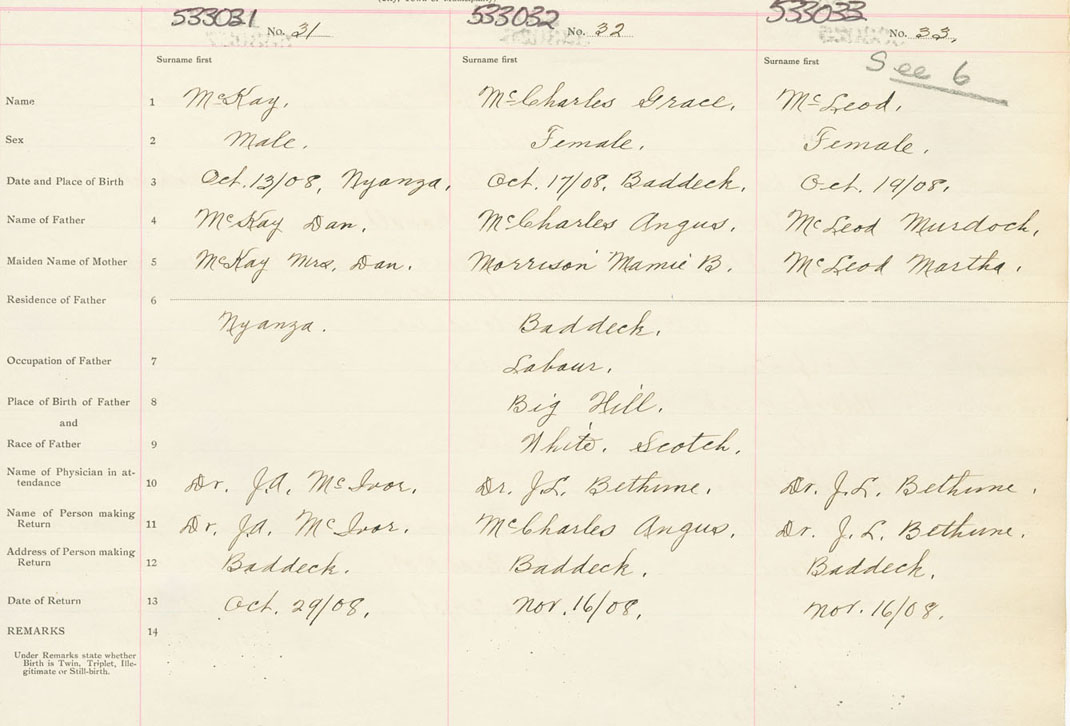 533031 533032 533033
No. 31 No. 32 No. 33.
Surname first Surname first Surname first See 6
Name 1 McKay. McCharles Grace. McLeod.
Sex 2 Male. Female. Female.
Date and Place of Birth 3 Oct. 13/08, Nyanza. Oct. 17/08, Baddeck. Oct. 19/08.
Name of Father 4 McKay Dan. McCharles Angus. McLeod Murdoch.
Maiden Name of Mother 5 McKay Mrs. Dan. Morrison Mamie B. McLeod Martha.
Residence of Father 6
Nyanza. Baddeck.
Occupation of Father 7 Labour.
Place of Birth of Father 8 Big Hill.
and
Race of Father 9 White. Scotch.
Name of Physician in at-
tendance 10 Dr. J.A. McIvor. Dr. J.L. Bethune. Dr. J.L. Bethune.
Name of Person making
Return 11 Dr. J.A. McIvor. McCharles Angus. Dr. J. L. Bethune.
Address of Person making
Return 12 Baddeck. Baddeck. Baddeck.
Date of Return 13 Oct. 29/08. Nov. 16/08. Nov. 16/08.
REMARKS 14
Under Remarks state whether
Birth is Twin, Triplet, Ille-
gitimate or Still-birth.